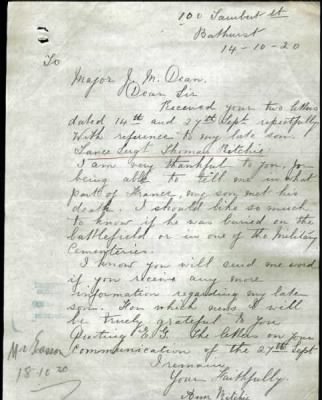 100 Lambert St
Bathurst
14-10-20
To
Major J. M. Dean.
Dear Sir
Received your two letters
dated 14th and 27th Sept respectfully
With reference to my late son
Lance Sergt Thomas Ritchie
I am very thankful to you, for
being able to tell me in what
part of France, my son met his
death. I should like so much
to know if he was buried on the
battlefield or in one of the Military
Cemeteries.
I know you will send me word
if you receive any more
information regarding my late
son. For which news I will
be truely grateful to you
Quoting E.G. The letters on your
Communication of the 27th Sept
I remain
Your Faithfully.
Ann Ritchie
18.10.20